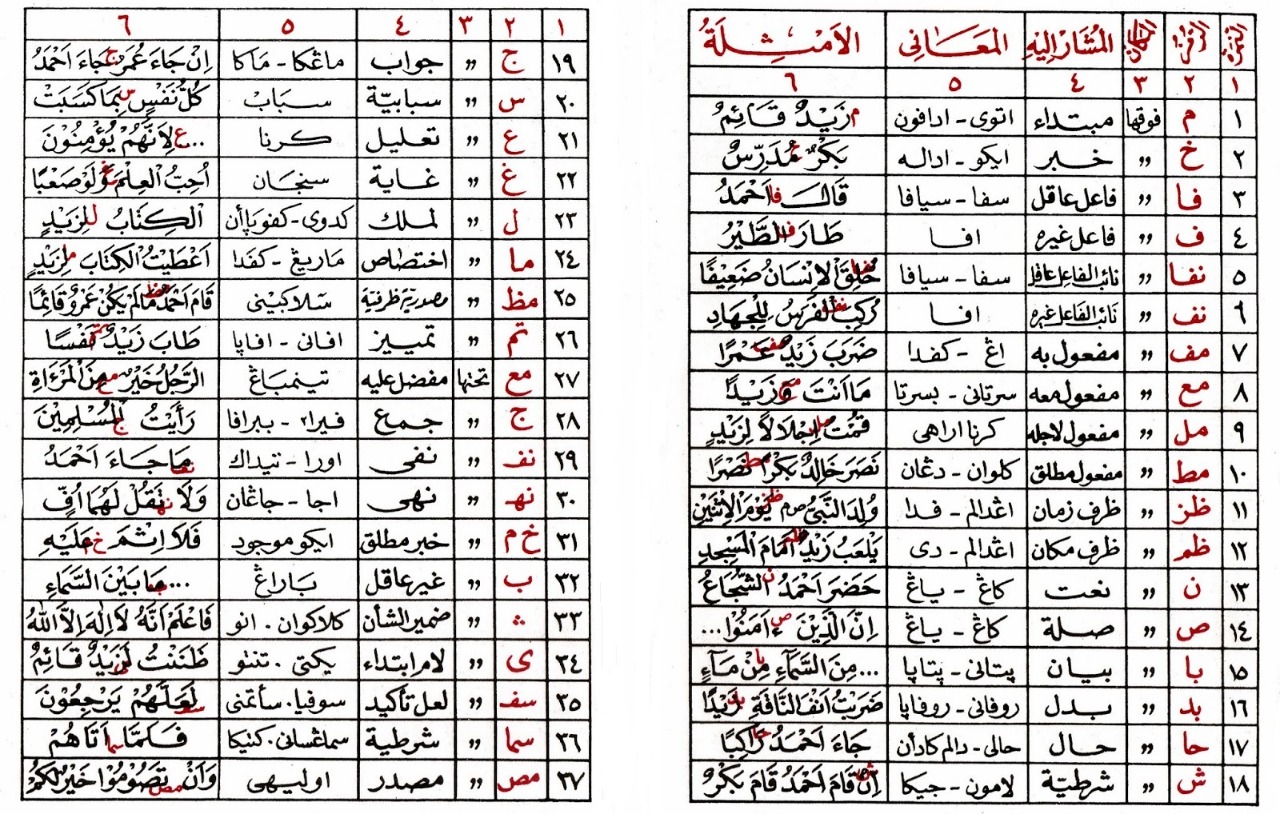 المكان المشار إليه المعانى الأمثلة
١ ٢ ٣ ٤ ٥ ٦
١ م فوقها مبتداء اتوى - ادافون م زَيْدٌ قَائِمٌ
٢ خ ,, خبر ايكو - اداله بَكْرٌ خ مُدَرِّسٌ
٣ فا ,, فاعل عاقل سفا - سيافا قَالَ فا اَحْمَدُ
٤ ف ,, فاعل غيره افا طَارَ ف الطَّيْرُ
٥ نفا ,, نائب الفاعل عاقل سفا - سيافا خُلِقَ نفا الْاِنْسَانُ ضَعِيْفًا
٦ نف ,, نائب الفاعل غيره افا رُكِبَ نف الْفَرَسُ لِلْجِهَادِ
٧ مف ,, مفعول به اڠ - كفدا ضَرَبَ زَيْدٌ مف عَمْرًا
٨ مع ,, مفعول معه سرتانى - بسرتا مَا اَنْتَ مع وَزَيْدًا
٩ مل ,, مفعول لاجله كرنا اراهى قُمْتُ مل اِجْلَالًا لِزَيْدٍ
١٠ مط ,, مفعول مطلق كلوان - دڠان نَصَرَ خَالِدٌ بَكْرًا مط نَصْرًا
١١ ظز ,, ظرف زمان اڠدالم - فدا وُلِدَ النَّبِيُّ ص م ظز يَوْمَ الْاِثْنَيْنِ
١٢ ظم ,, ظرف مكان اڠدالم - دى يَلْعَبُ زَيْدٌ ظم اَمَامَ الْمَسْجِدِ
١٣ ن ,, نعت كاڠ - ياڠ حَضَرَ اَحْمَدُ ن الشُّجَاعُ
١٤ ص ,, صلة كاڠ - ياڠ اِنَّ الَّذِيْنَ ص ءَامَنُوْا...
١٥ با ,, بيان پتانى - پتاپا ...مِنَ السَّمَآءِ با مِنْ مَآءٍ
١٦ بد ,, بدل روفانى - روفاپا ضَرَبْتُ اَنْفَ النَّاقَةِ بد زَيْدًا
١٧ حا ,, حال حالى - دالم كادأن جَاءَ اَحْمَدُ حا رَاكِبًا
١٨ ش ,, شرطيّة لامون - جيكا ش اِنْ قَامَ اَحْمَدُ قَامَ بَكْرٌ
١ ٢ ٣ ٤ ٥ ٦
١٩ ج ,, جواب ماڠكا - ماكا اِنْ جَاءَ عُمَرُ ج جَاءَ اَحْمَدُ
٢٠ س ,, سبابيّة سباب كُلُّ نَفْسٍ س بِمَا كَسَبَتْ
٢١ ع ,, تعليل كرنا ...ع لِاَنَّهُمْ يُؤْمِنُوْنَ
٢٢ غ ,, غاية سنجان اُحِبُّ الْعِلْمَ غ وَلَوْ صَعْبًا
٢٣ ل ,, لملك كدوى - كفوپاأن اَلْكِتَابُ ل لِزَيْدٍ
٢٤ ما ,, اختصاص ماريڠ - كفدا اَعْطَيْتُ الْكِتَابَ ما لِزَيْدٍ
٢٥ مظ ,, مصدرية ظرفية سلاكينى قَامَ اَحْمَدُ مظ مَالَمْ يَكُنْ عَمْرٌو قَائِمًا
٢٦ تم ,, تمييز افانى - افاپا طَابَ زَيْدٌ تم نَفْسًا
٢٧ مع تحتها مفضل عليه تينمباڠ الرَّجُلُ خَيْرٌ مع مِنَ الْمَرْءَاةِ
٢٨ ج ,, جمع فيرا٢ - ببرافا رَأَيْتُ ج الْمُسْلِمِيْنَ
٢٩ نف ,, نفى اورا - تيداك نف مَا جَاءَ اَحْمَدُ
٣٠ نهـ ,, نهى اجا - جاڠان وَلَا نهـ تَقُلْ لَهُمَا اُفٍّ
٣١ خ م ,, خبر مطلق ايكو موجود فَلَا اِثْمَ خ م عَلَيْهِ
٣٢ ب ,, غير عاقل باراڠ ...مَا بَيْنَ السَّمَاءِ
٣٣ ,, ضمير الشأن كلاكوان . انو فَاعْلَمْ اَنَّهُ لَا اِلٰهَ اِلَّا اللّٰهُ
٣٤ ى ,, لام ابتداء يكتى . تنتو ظَنَنْتُ ى لَزَيْدٌ قَائِمٌ
٣٥ سف ,, لعل تأكيد سوفيا . سأتمنى سف لَعَلَّهُمْ يَرْجِعُوْنَ
٣٦ سما ,, شرطية سماڠسانى . كتيكا فَلَمَّا سما اَتَاهُمْ
٣٧ مص ,, مصدر اوليهى وَاَنْ مص تَصُوْمُوْا خَيْرٌ لَكُمْ